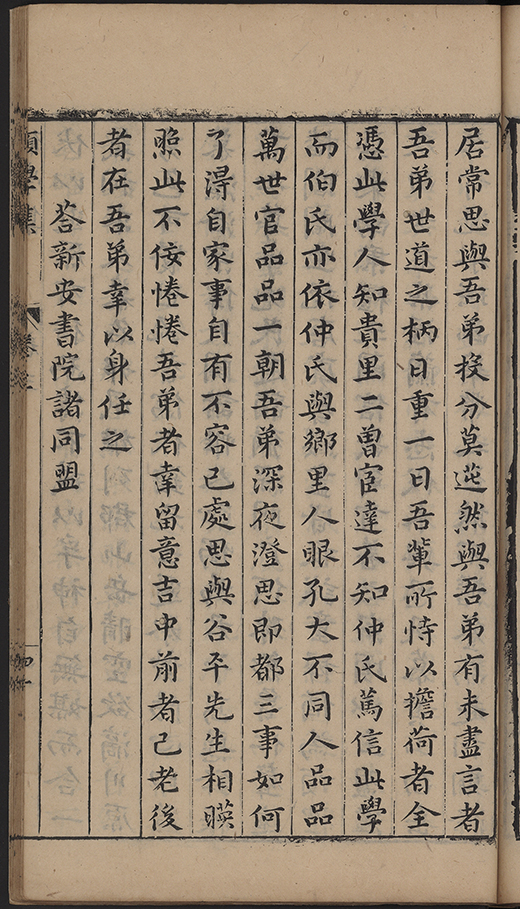 居常思與吾弟投分莫逆然與吾弟有未盡言者
吾弟世道之柄日重一日吾輩所恃以擔荷者全
憑此學人知貴里二曾宦達不知仲氏篤信此學
而伯氏亦依仲氏與鄉里人眼孔大不同人品品
萬世官品品一朝吾弟深夜澄思即都三事如何
了淂自家事自有不容已處思與谷平先生相暎
照此不佞惓惓吾弟者幸留意吉中前者已老後
者在吾弟幸以身任之
荅新安書院諸同盟
願學集
卷二
四